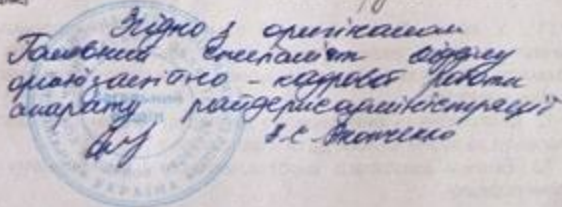 Згідно з оригіналом
Головний спеціаліст відділу
організаційно - кадрової роботи
апарату райдержадміністрації
УКРАЇНА